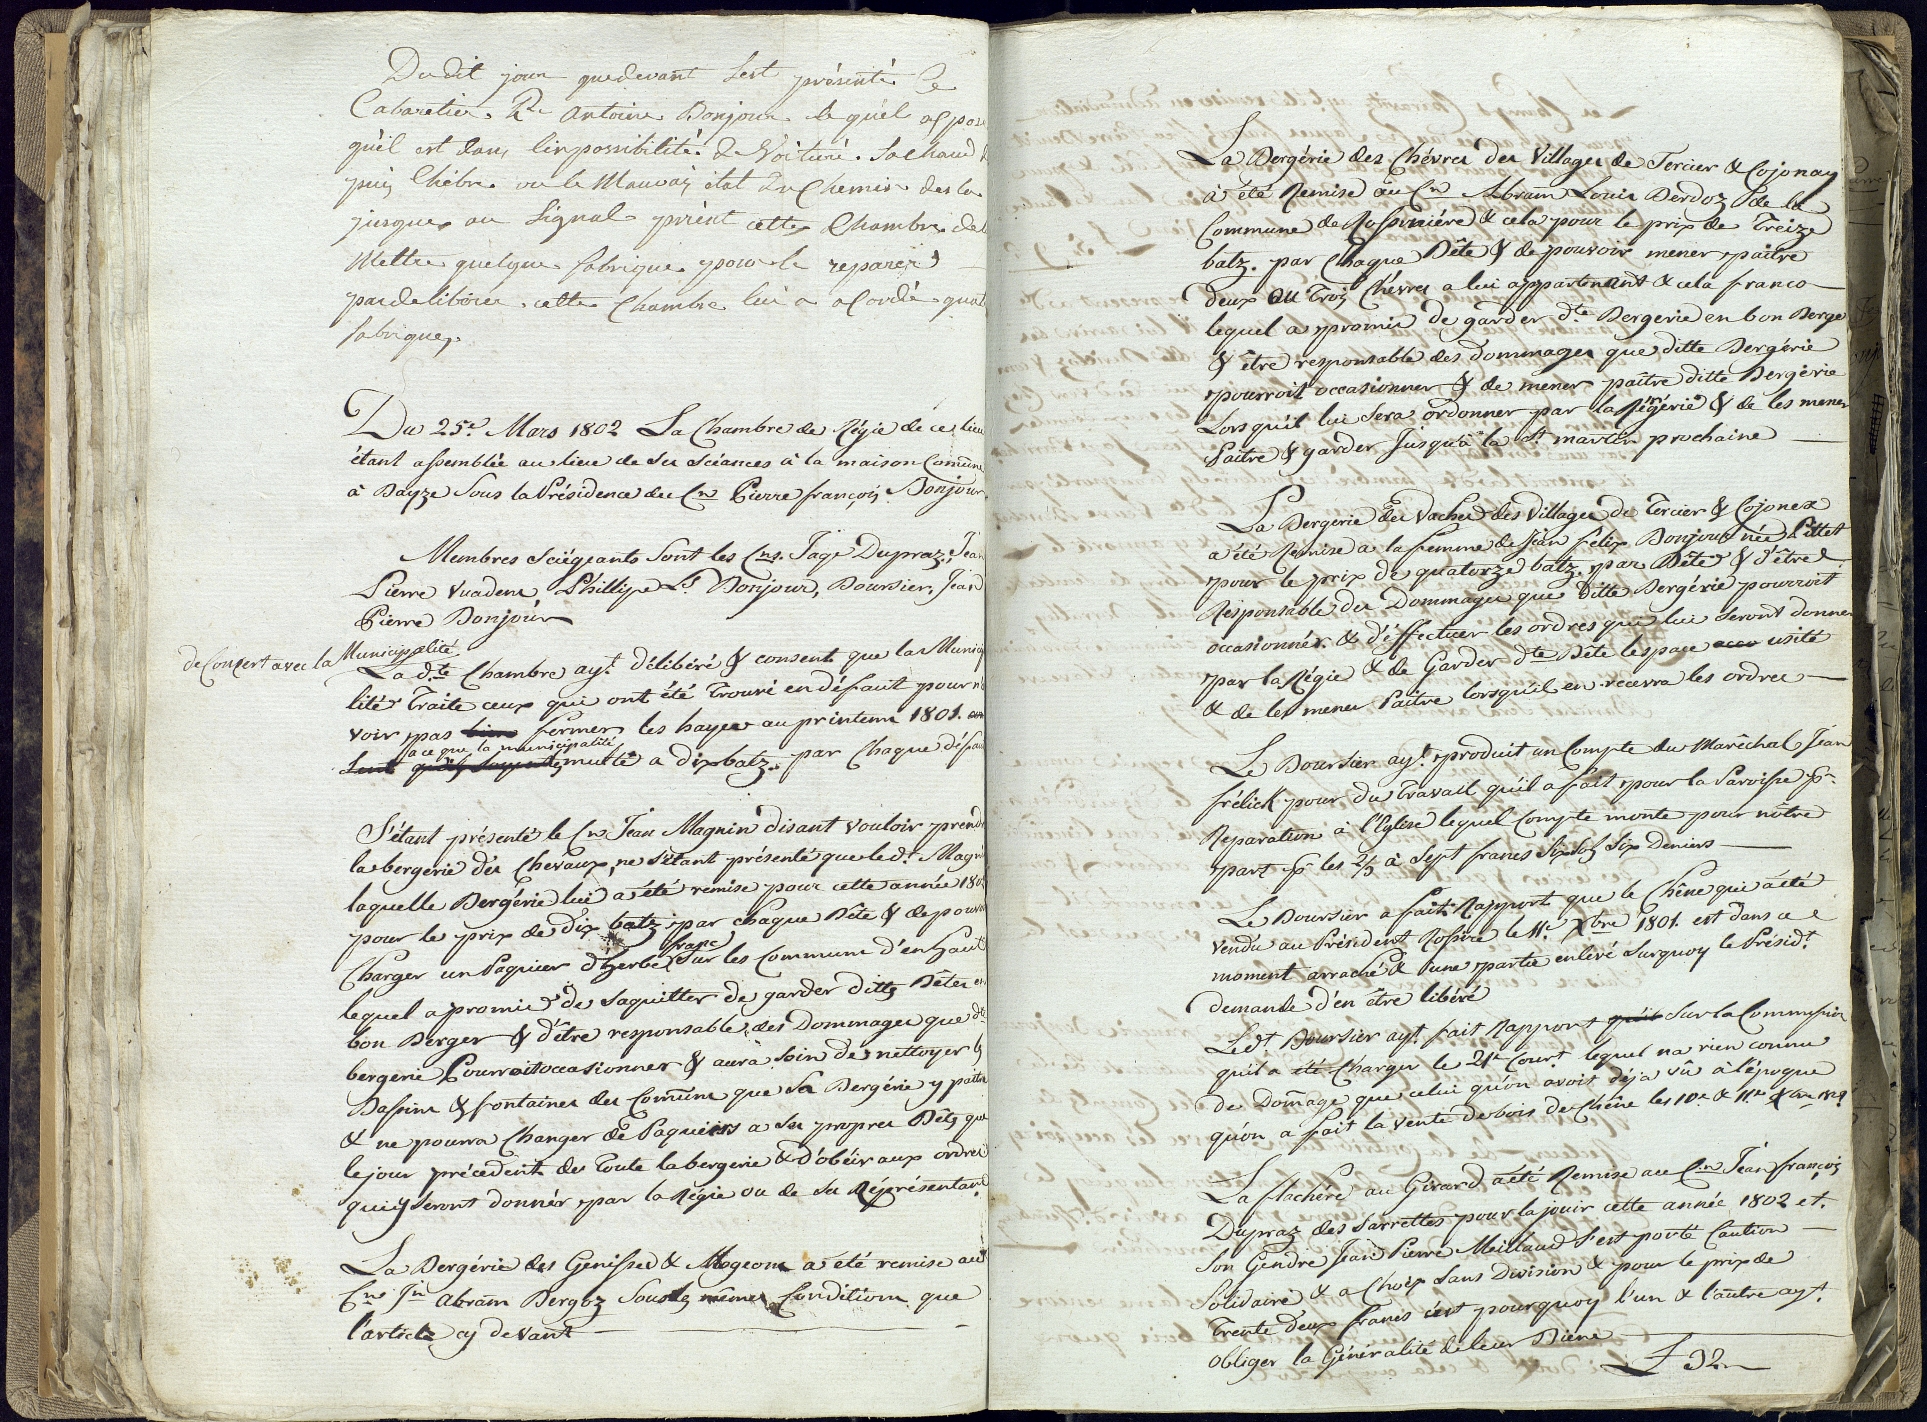 Du dit jour quedevant s'est présenté le
Cabaretier. Antoine Bonjour le quel a expos
qu'il est dans l'impossibilité de Voituré. Sa chaud
puis Chèbre ou le Mauvais état du Chemin des la
jusques au Signal prient cette Chambre de
Mettre quelque fabrique pour le reparer
par delibérér cette Chambre lui a acordé quat
fabriques.
Du 25e. Mars 1802 La Chambre de Régie de ce lieu
étant assemblée au lieu de ses Scéances à la maison Comune
à Bayze Sous la Présidence du Cn Pierre françois Bonjour
Membres Sciégeants Sont les Cns. Jaqe Dupraz, Jean
Pierre Vuadens, Phillipe Ls Bonjour, Boursier, Jean
Pierre Bonjour
de Consert avec la Municipalité
La dte Chambre ayt. délibéré & consent que la Munici
lité Traite ceux qui ont été Trouvé en défaut pour n'a
voir pas bien fermer les hayes au printems 1801.
a ce que la municipalité
multe a dix batz. par Chaque défau
S'étant présenté le Cn Jean Magnin disant vouloir prend
la bergerie des Chevaux, ne s'étant présenté que led. Magni
laquelle Bergérie lui a été remise pour cette année 180
pour le prix de dix batz par chaque Bête & de pouvoir
franc
Charger un Paquier d'herbe Sur les Commune d'en haut
lequel a promis de Saquitter de garder dittes Bêtes en
bon Berger & d'être responsable des Dommages que dte
bergerie Pourroit occasionner & aura Soin de nettoyer les
Bassins & fontaines des Comuns que Sa Bergérie y paitra
& ne pourra Changer de Paquiers a ses propres Bêtes que
le jour précedent de Toute la bergerie & d'obéir aux ordres
qui y Seront donnér par la Régie ou de Ses Répresentant
La Bergérie des Genisses & Mogeons a été remise au
Cn Jn Abram Bergoz Sous les mêmes Conditions que
l'article cy devant
La Bergérie des Chévres des Villages de Tercier & Cojonay
à été Remise au Cn Abram Louis Berdoz de la
Commune de Rossiniére & cela pour le prix de Treize
batz. par Chaque Bête & de pouvoir mener paître
deux ou Trois Chévres a lui appartenant & cela franco
lequel a promis de garder dte Bergerie en bon Berge
& être responsable des dommages que ditte Bergérie
pourroit occasionner & de mener paître ditte Bergérie
Lors qu'il lui Sera ordonner par la Régie & de les mener
Paître & garder Jusqu'à la St martin prochaine
La Bergerie des Vaches des Villages de Tercier & Cojonex
a été Remise a la femme de Jean félix Bonjour née Pittet
pour le prix de quatorze batz. par Bête & d'être
Responsable des Dommages que ditte Bergérie pourroit
occasionnér & d'éffectuer les ordres que lui Seront donner
par la Régie & de Garder dte Bête lespace usité
& de les mener Paitre lorsqu'il en recevra les ordres
Le Boursier ayt. produit un Compte du Maréchal Jean
frélick pour du Travail qu'il a fait pour la Paroisse pr
Reparation à l'Eglise lequel Compte monte pour nôtre
part pr les 2/3 à Sept francs Six Sols Six Deniers
Le Boursier a fait Rapport que le Chêne qui a été
vendu au Président Rossire le 11e. Xbre 1801. est dans ce
moment arraché & une partie enlévé Surquoy le Présidt
demande d'en être libéré
Ledt Boursier ayt. fait Rapport qu'il Sur la Commission
qu'il a été Charger le 21e Court lequel n'a rien connu
de Domage que celui qu'on avoit déja vû à l'époque
qu'on a fait la vente de bois de Chêne les 10e & 11e Xbre
La flachére au Girard a été Remise au Cn Jean françois
Dupraz des Sarrettes pour la jouir cette année 1802 et.
Son Gendre Jean Pierre Meillaud S'est porté Caution
Solidaire & a Choix Sans Division & pour le prix de
Trente deux francs c'est pourquoy l'un & l'autre ayt.
obliger la Généralité de leur Biens
L 32